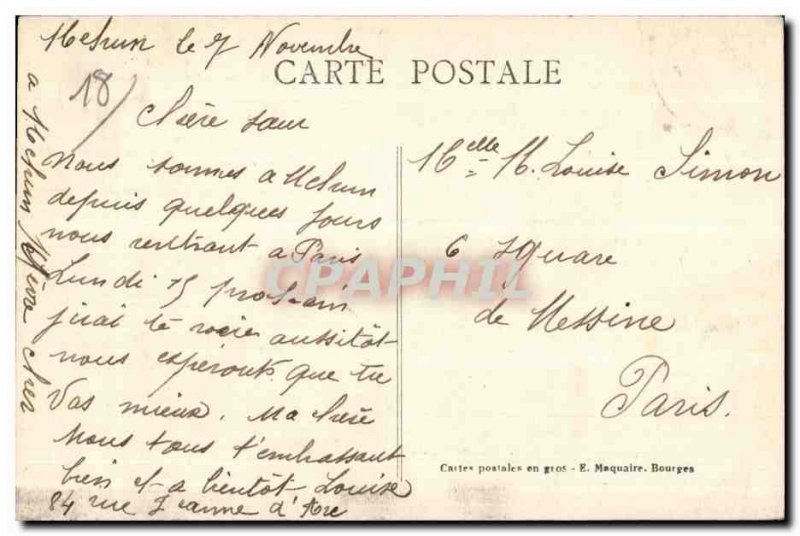 Mehun le 7 Novembre
CARTE POSTALE
18
Chère sœur
Nous sommes a Mehun
depuis quelques jours
nous rentrant a Paris
Lundi 15 prochain
jirai te voire aussitôt
nous esperont que tu
vas mieux. Ma Chère
Nous tous t'embrassant
bien et a bientôt Louise
84 rue Jeanne d'Arc
a Mehun /Yèvre Cher
Melle M. Louise Simon
6 square
de Messine
Paris.
Cartes postales en gros - E. Maquaire. Bourges
CPAPHIL